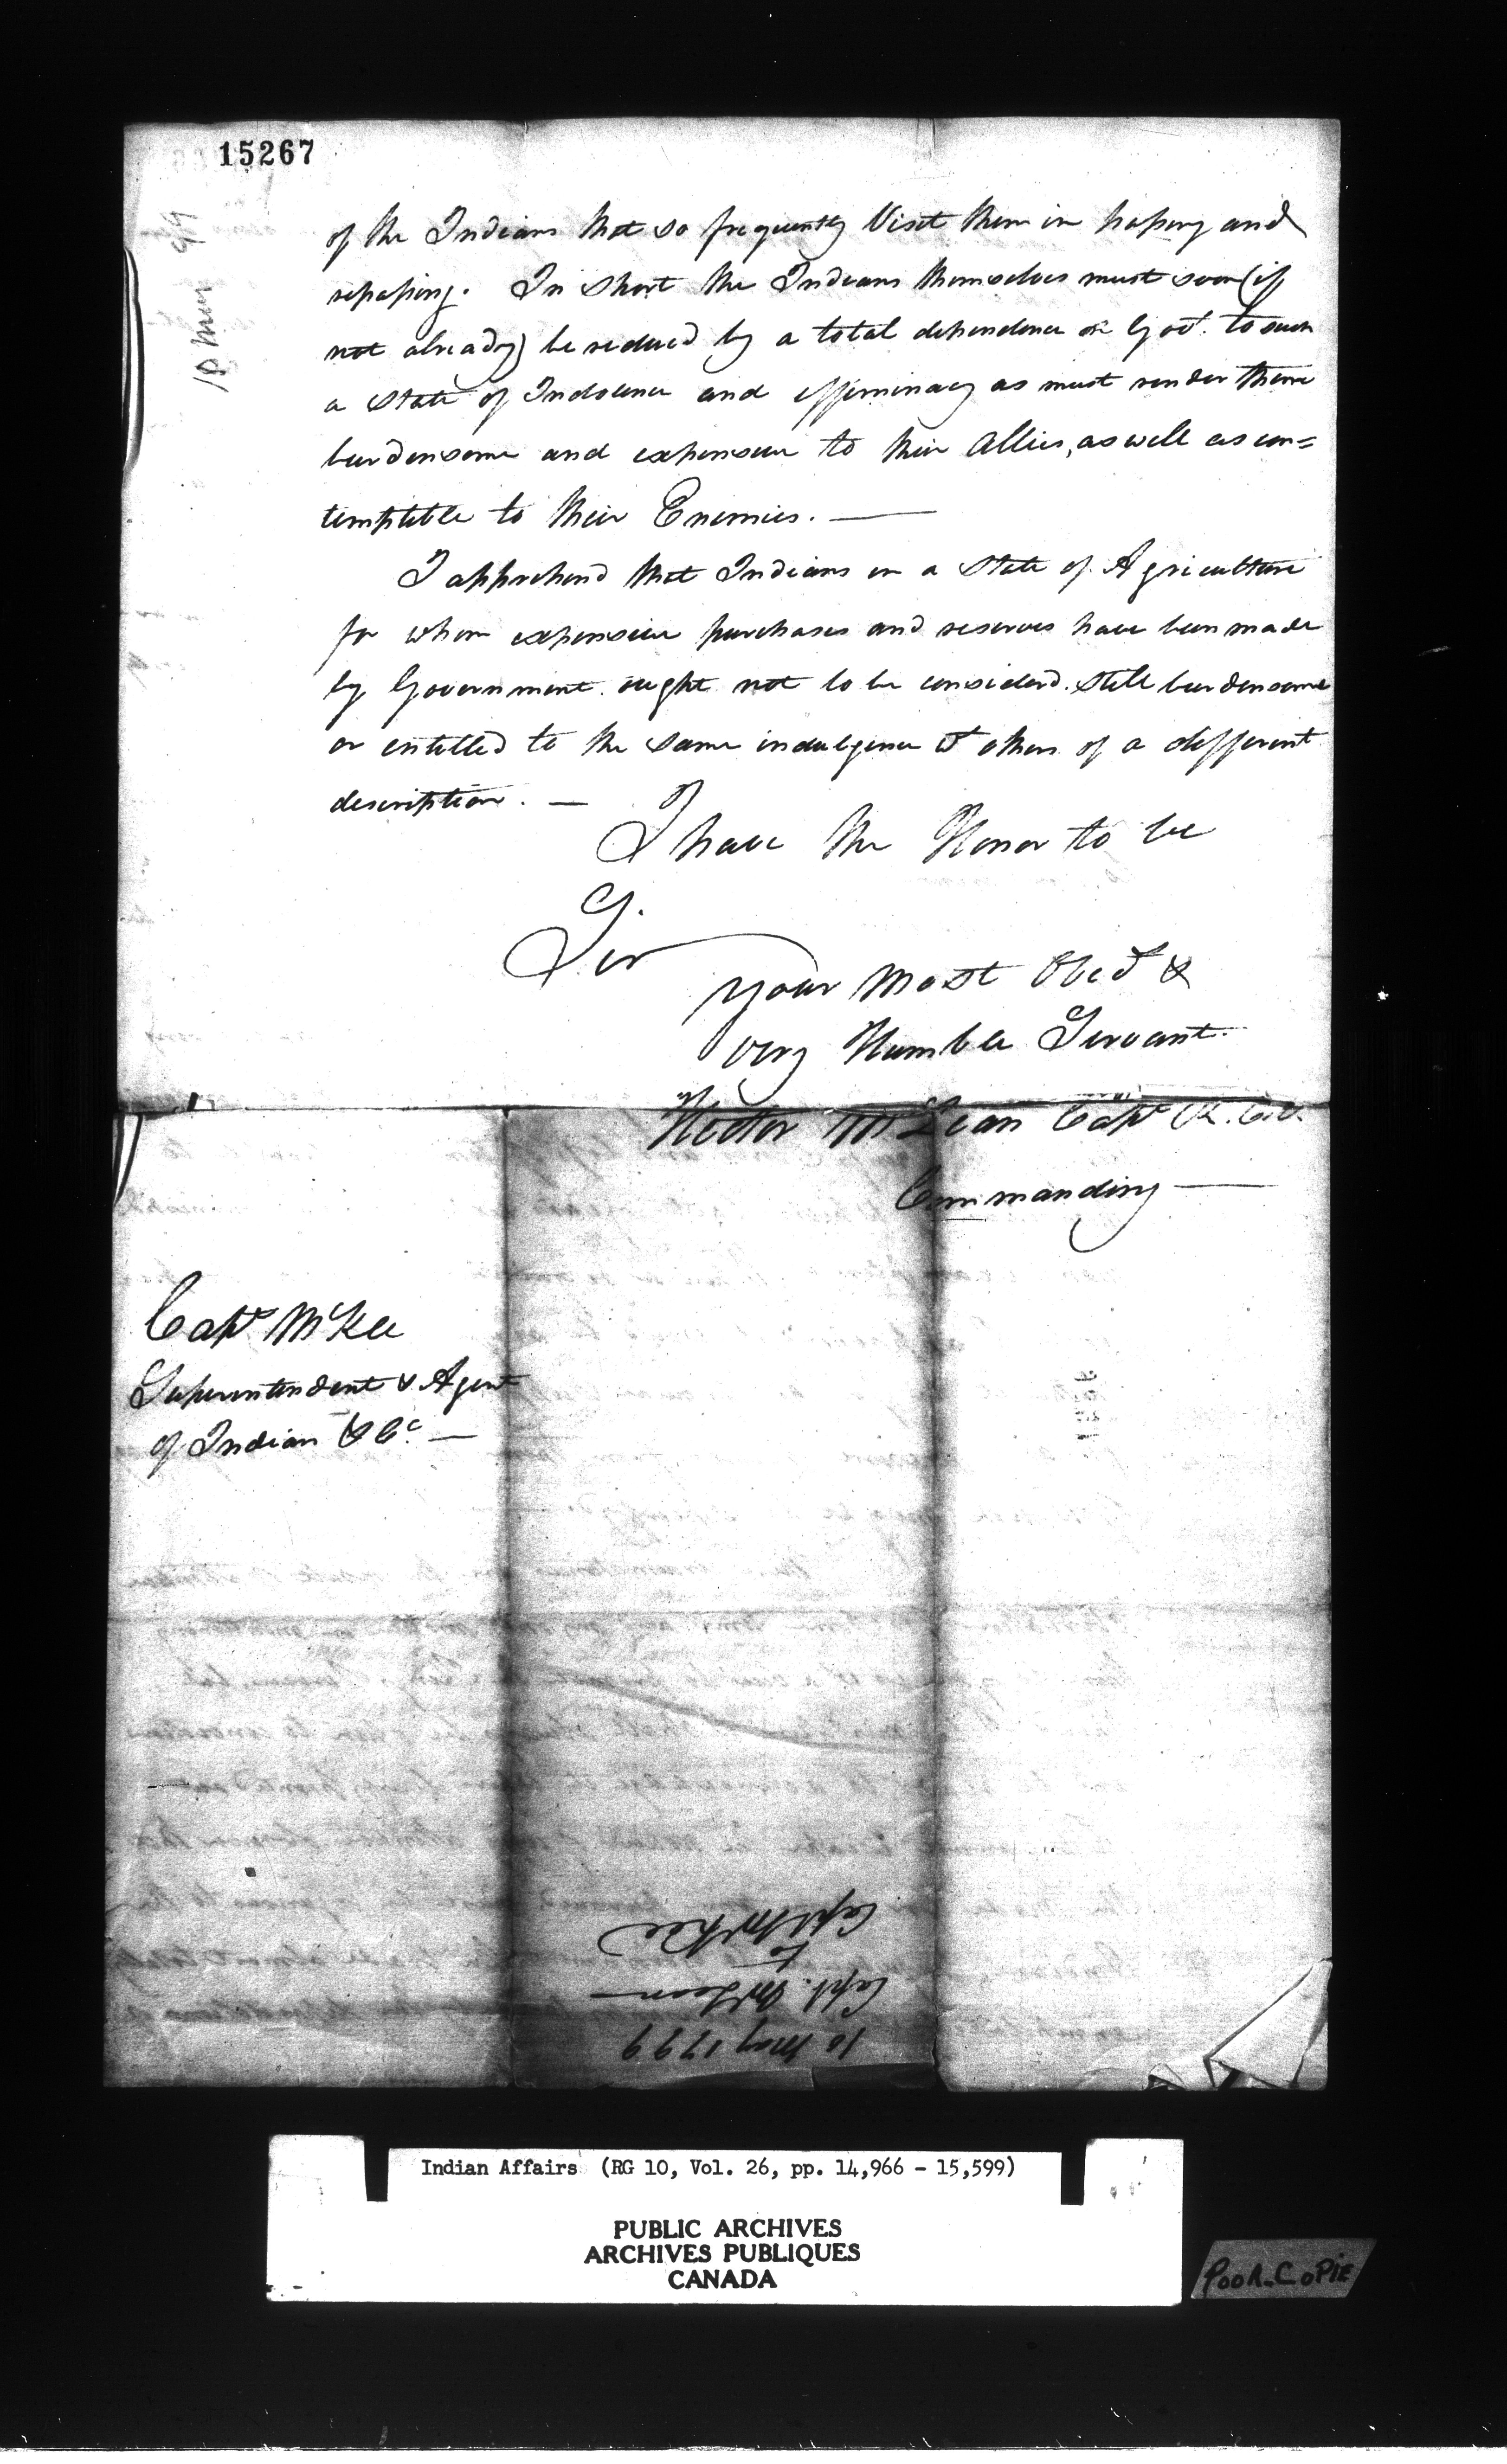 15267
10 May 99
of the Indians that so frequently Visit them in passing and
repassing. In short the Indians themselves must soon (if
not already) be reduced by a total dependence on Govt. to such
a state of Indolence and effeminacy as must render them
burdensome and expensive to their Allies, as well as con=
temptible to their Enemies. —
I apprehend that Indians in a State of Agriculture
for whom expensive purchases and reserves have been made
by Government ought not to be considerd. still burdensome
or entitled to the same indulgence wt others of a different
description. —
I have the Honor to be
Sir
Your Most Obed &
very Humble Servant.
Hector McLean Capt R. C. V.
Commanding —
Capt McKee
Superintendent & Agent
of Indian &Cc. —
10 May 1799
Capt. McLean
to
Capt McKee
Indian Affairs (RG 10, Vol. 26, pp. 14,966 - 15,599)
PUBLIC ARCHIVES
ARCHIVES PUBLIQUES
CANADA
POOR COPIE